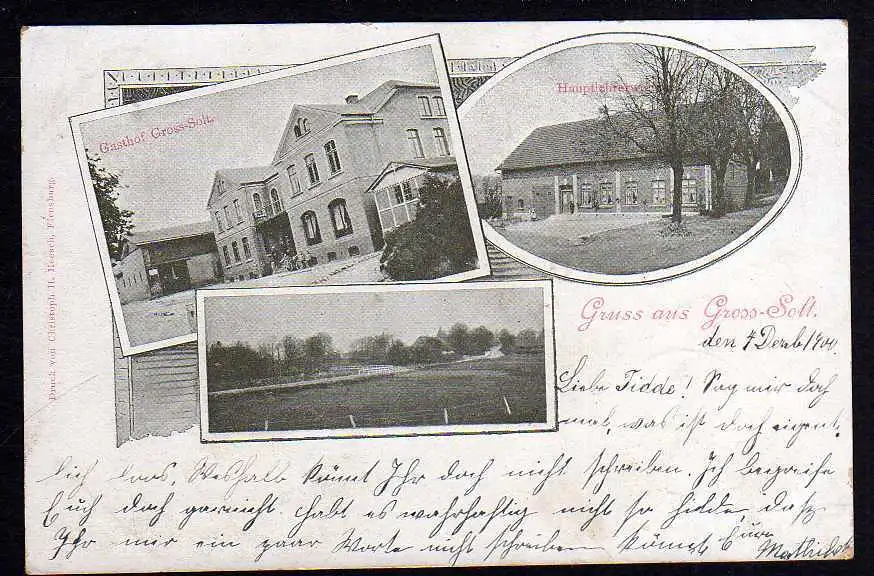 Gasthof Gross-Solt.
Druck von Christoph H. Hoesch, Flensburg.
Gruss aus Gross-Solt.
den 7 Dezb 1900.
Liebe Tidde! Sag mir doch
mal, was ist doch eigent,
lich loos, Weshalb könnt Ihr doch nicht schreiben. Ich begreife
Euch doch garnicht. habt es wahrhaftig nicht so hidde, daß
Ihr mir ein paar Worte nicht schreiben könnt Eure